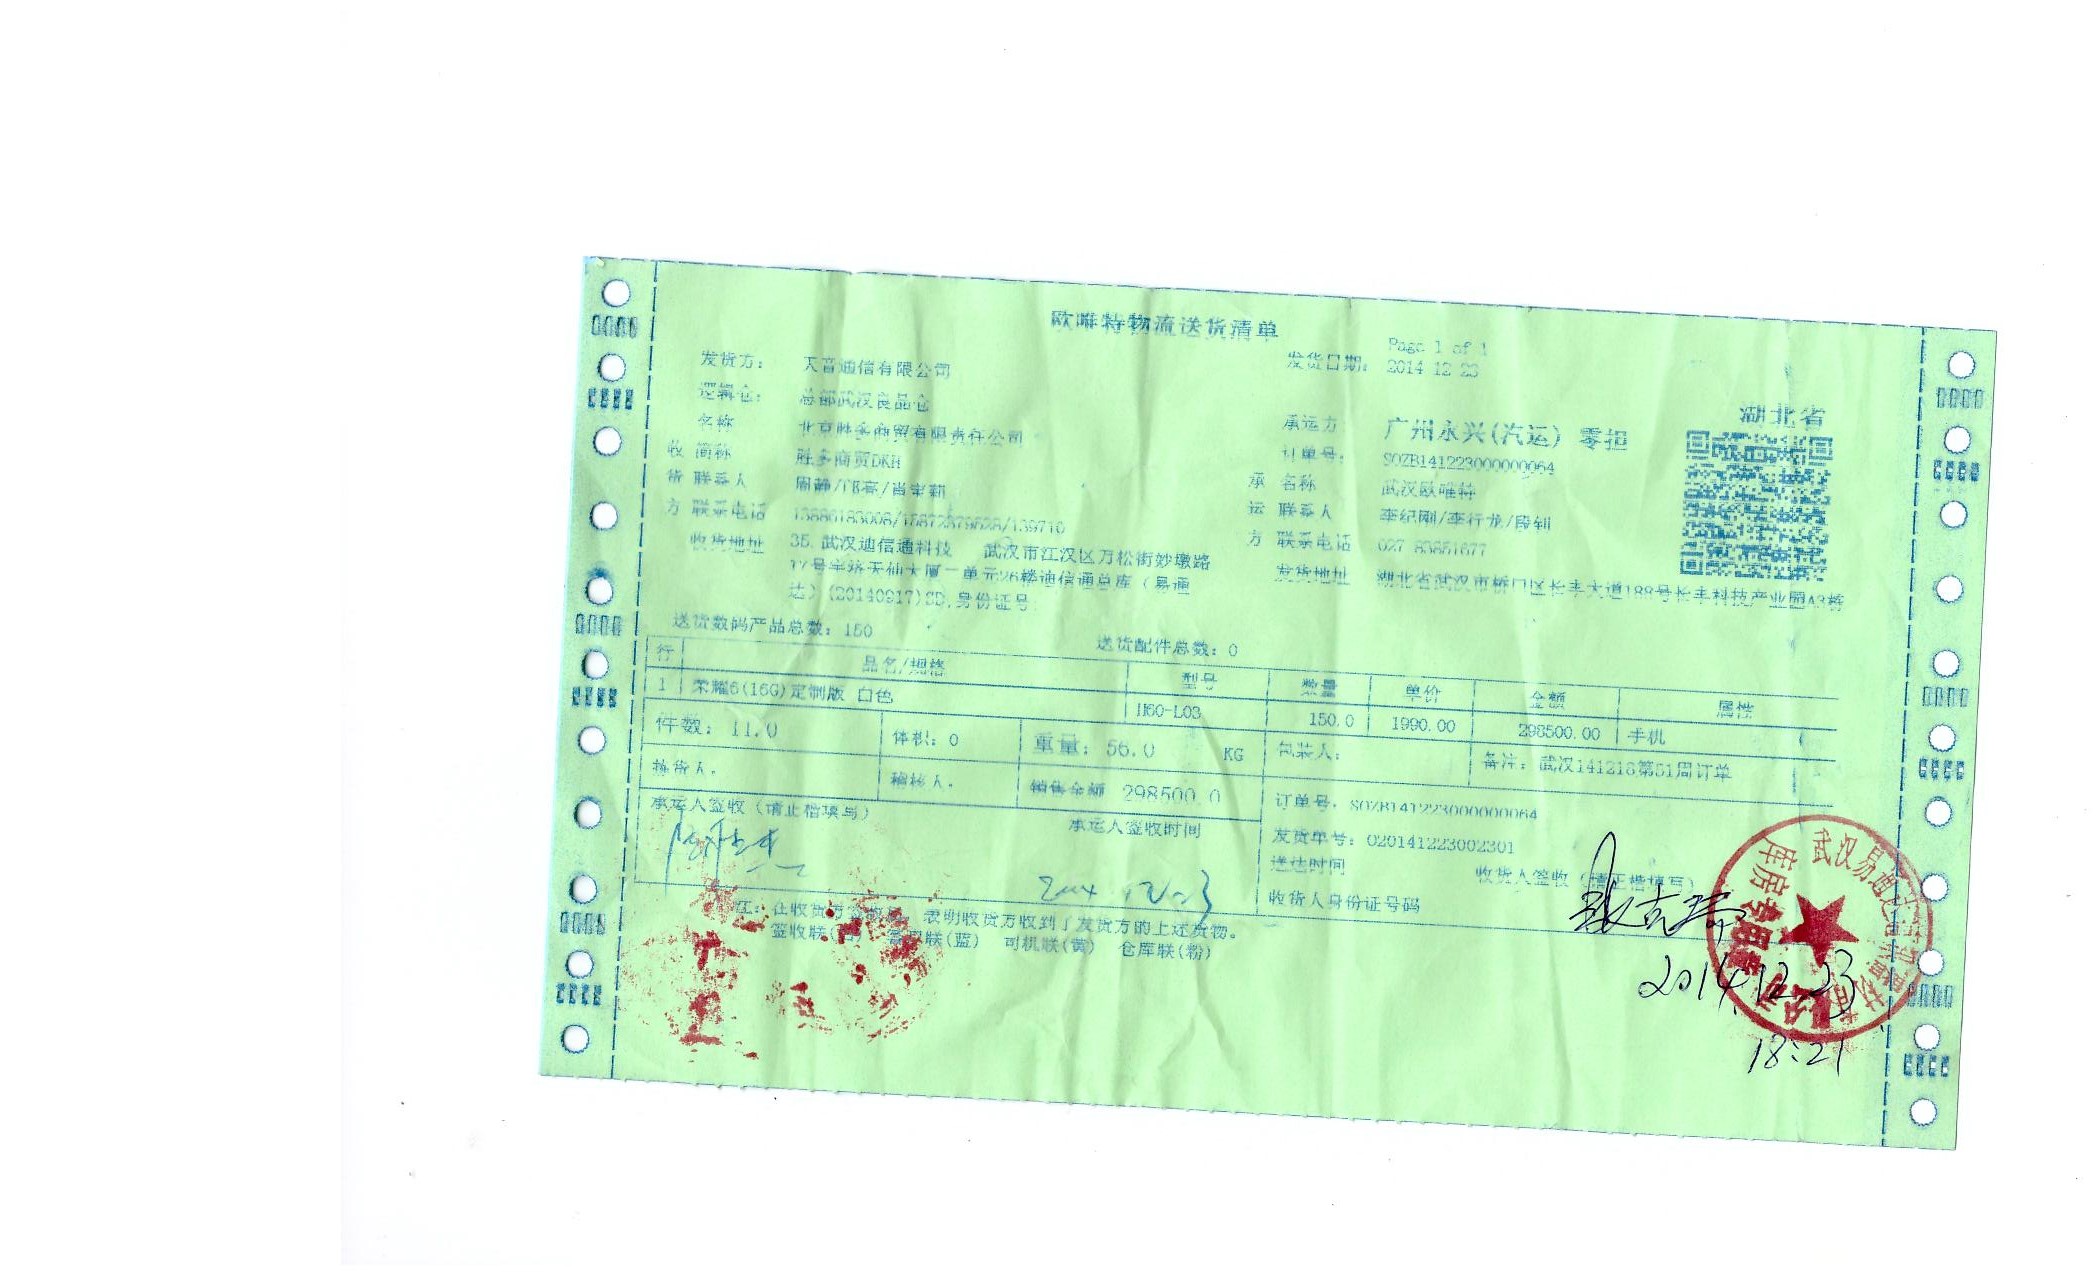 欧唯特物流送货清单
Page 1 of 1
发货方: 天音通信有限公司 发货日期: 2014 12 23
逻辑仓: 总部武汉良品仓 湖北省
名称 北京胜多商贸有限责任公司 承运方 广州永兴(汽运) 零担
收 简称 胜多商贸DKH 订单号: SOZB141223000000064
货 联系人 周静/邝亮/肖 承 名称 武汉欧唯特
方 联系电话 运 联系人 李纪刚/李行龙/段钊
收货地址 35.武汉迪信通科技 武汉市江汉区万松街妙墩路 方 联系电话 027 83851677
17号 天仙大厦一单元26楼迪信通总库(易通 发货地址 湖北省武汉市桥口区长丰大道188号长丰科技产业园A3栋
达)(20140917)SD,身份证号:
送货数码产品总数: 150 送货配件总数: 0
行 品名/规格 型号 数量 单价 金额 属性
1 荣耀6(16G)定制版 白色 H60-L03 150.0 1990.00 298500.00 手机
件数: 11.0 体积: 0 重量: 56.0 KG 包装人: 备注: 武汉141218第51周订单
拣货人: 稽核人: 销售金额 298500.0
承运人签收(请正楷填写) 承运人签收时间 订单号: SOZB141223000000064
发货单号: 020141223002301
送达时间 收货人签收(请正楷填写)
2014.12.23
收货人身份证号码
注: 在收货方签收后, 表明收货方收到了发货方的上述货物。
签收联(白) 联(蓝) 司机联(黄) 仓库联(粉)
2014.12.23
18:21
武汉易通达
库房